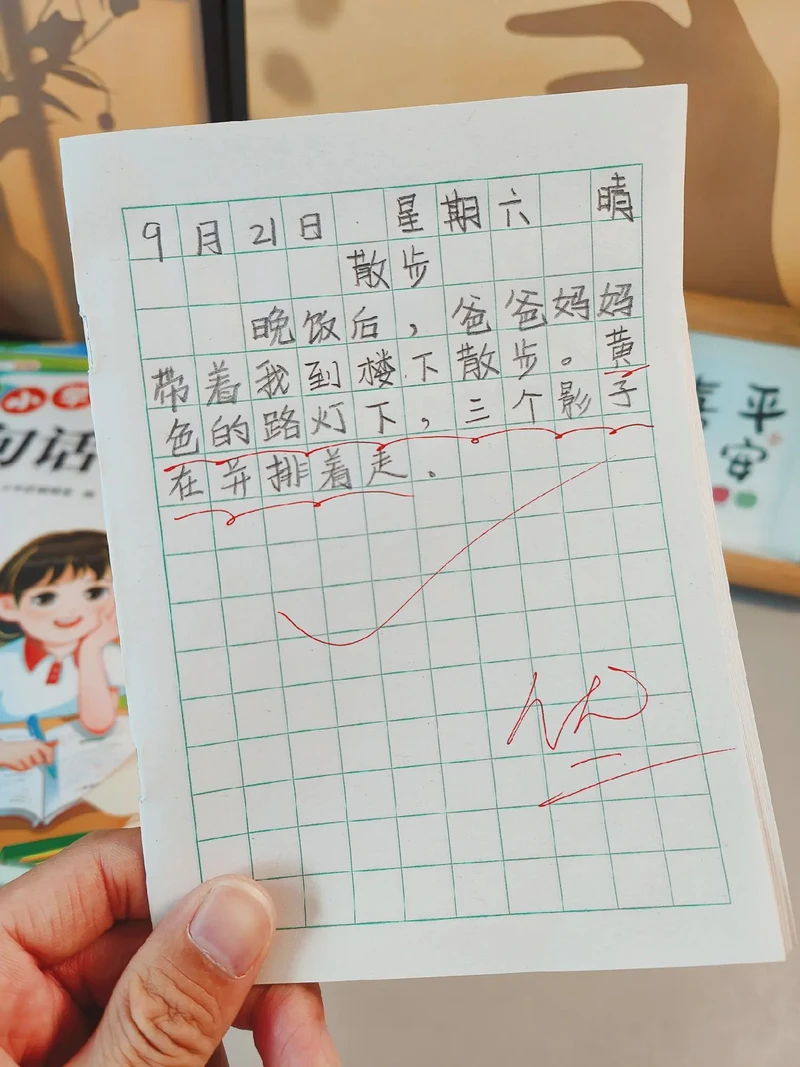 9月21日 星期六 晴
散步
晚饭后，爸爸妈妈
带着我到楼下散步。黄
色的路灯下，三个影子
在并排着走。
小学
句话
平
安
喜